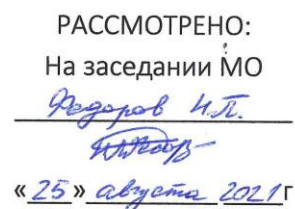 РАССМОТРЕНО:
На заседании МО
Федоров Н.П.
«25» августа 2021г